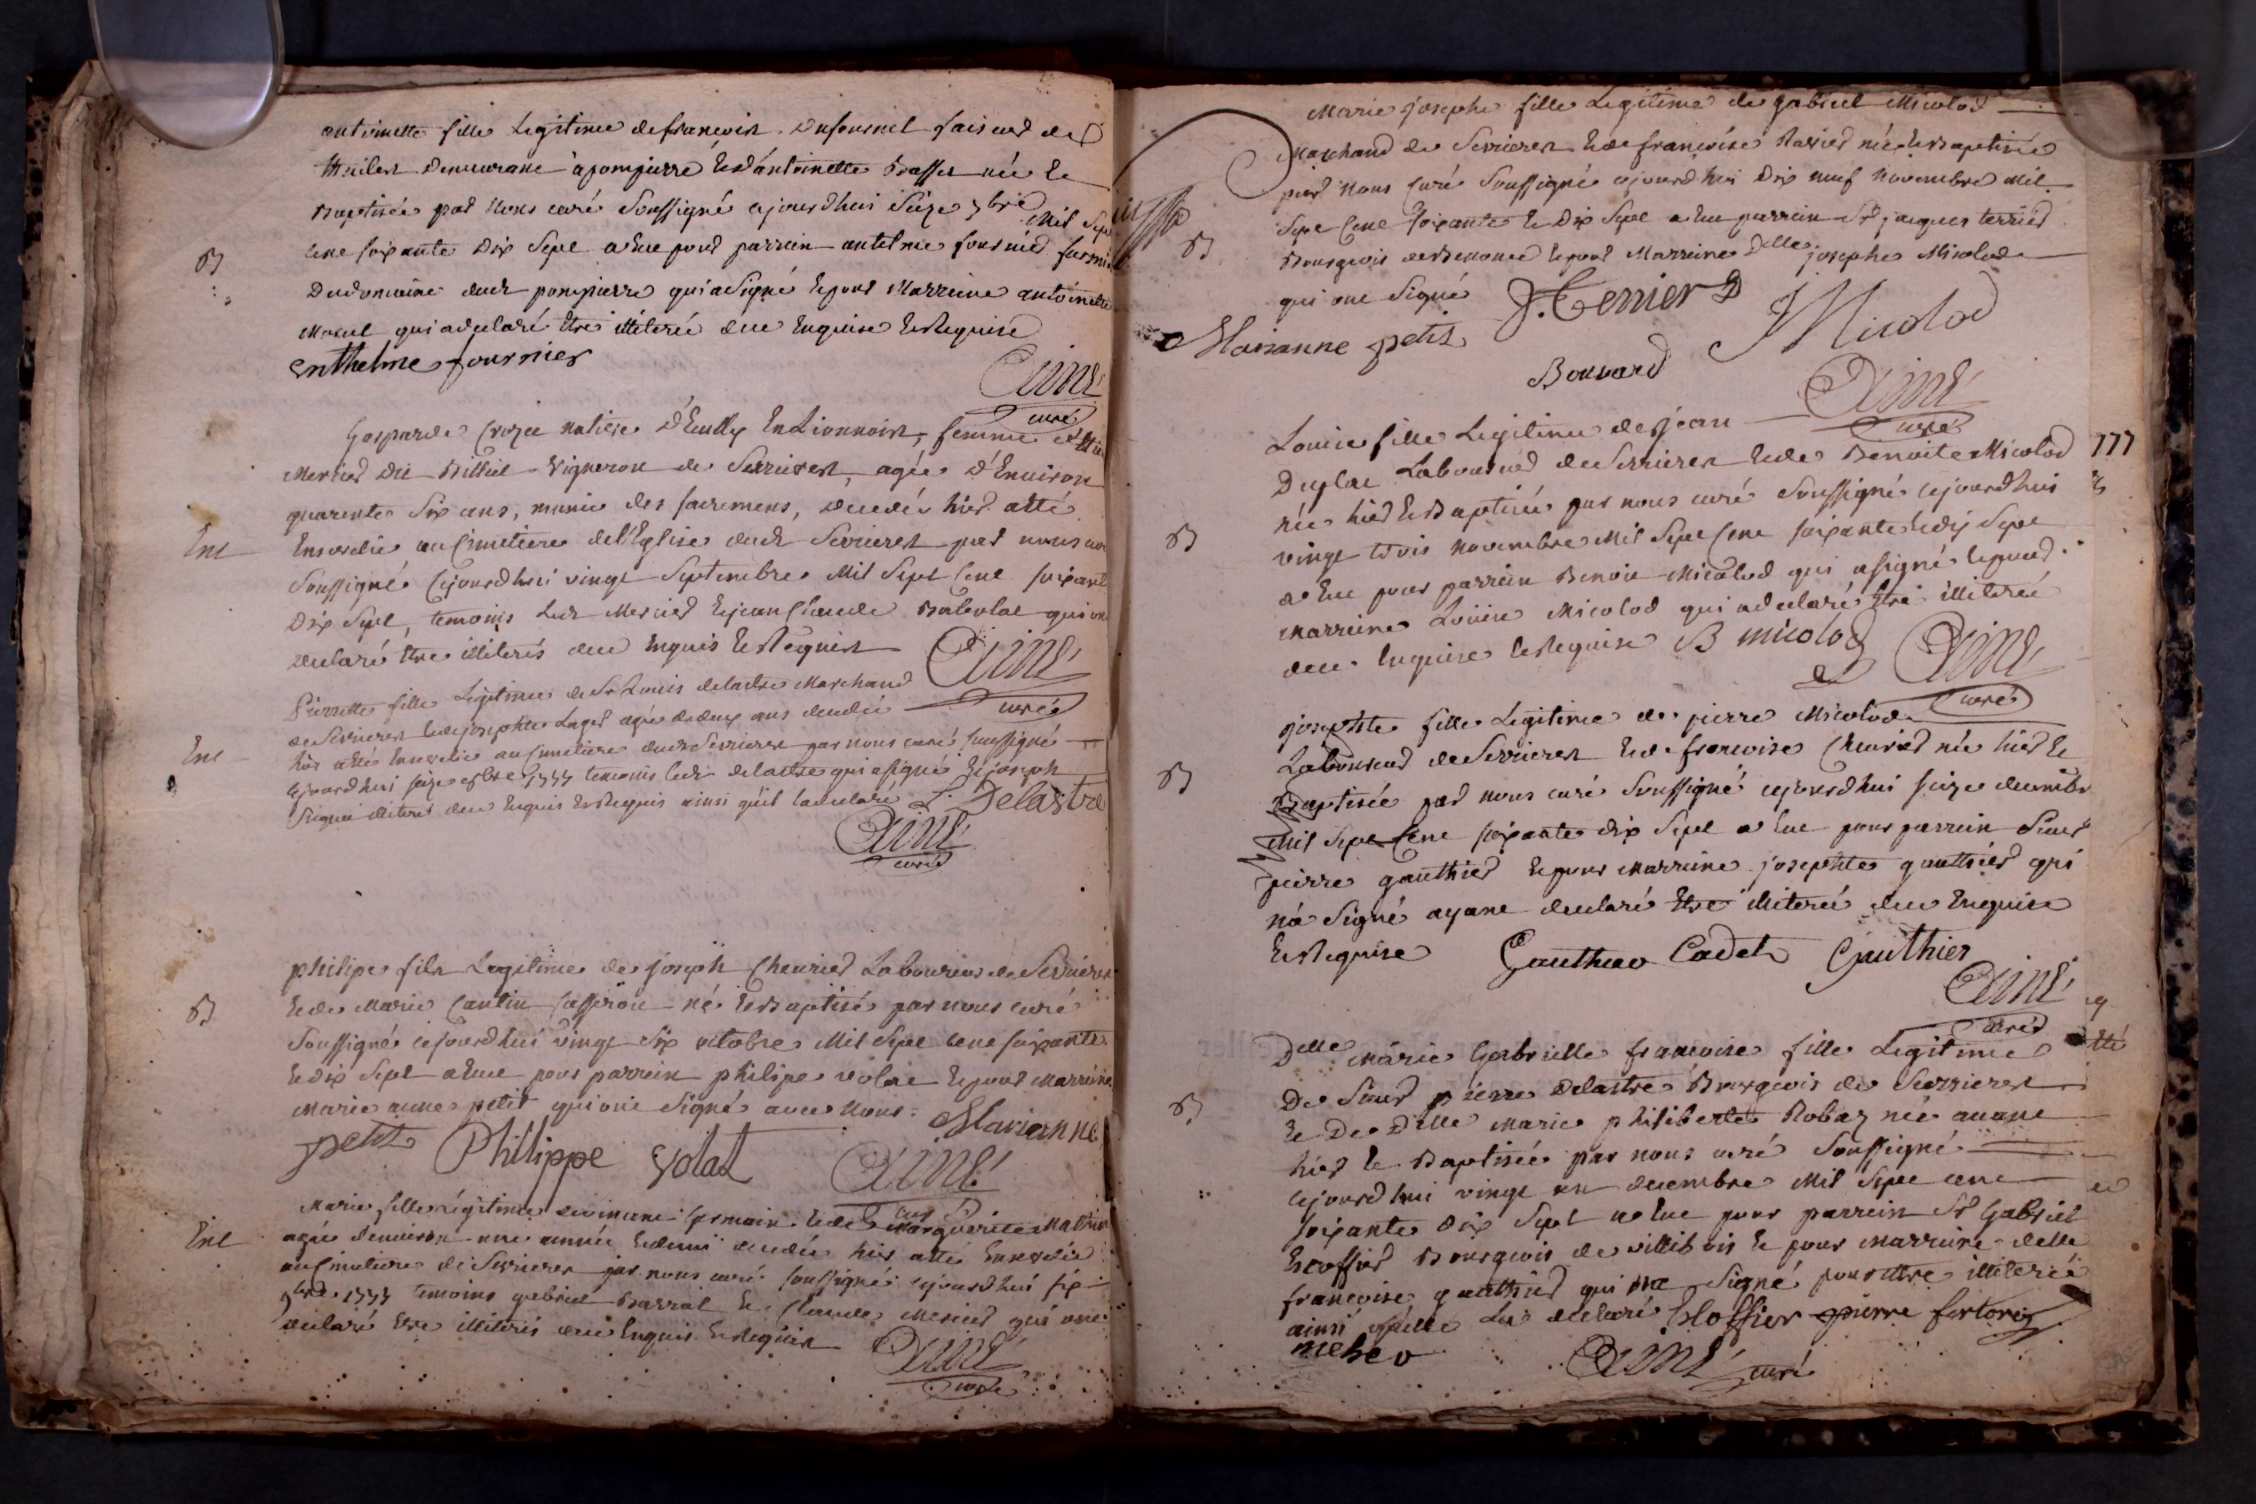 antoinette fille Legitime de francois Dufournel faiseur de
thuiles demeurant à pompierre et d'antoinette Brasset née et
Baptisée par Nous curé Soussigné cejourdhui Seize 7bre Mil Sept
B
cent soixante Dix Sept a Eue pour parrein antelme fournier fermier
Du domaine dudt pompierre qui a Signé et pour Marreine antoinette
qui a declaré être illiterée deue Enquise et Requise
Enthelme fournier
Aimé
curé
Gasparde native d'Ecully En Lionnois, femme
Mercier Dit Billiet Vigneron de Serrieres, agée D'Environ
quarente Six ans, munie des sacremens, decedée hier atté
Ent
Ensevelie au Cimetiere de l'Eglise dudt Serrieres par nous
Soussigné Cejourdhui vingt Septembre Mil Sept Cent soixante
Dix Sept, temoins Ledt Mercier et jean Claude qui ont
declaré être illiterés deue Enquis et Requis
Aimé
curé
Pierrette fille Legitime de Sr Louis delastre Marchand
de Serrieres et de josephte agée de deux ans decedée
Ent
hier atté Ensevelie au Cimetiere dudt Serrieres par nous curé soussigné
cejourdhui seize 1777 temoins ledt delastre qui a signé et joseph
illiteré deue Enquis et Requis ainsi qu'il la declaré L. Delastre
Aimé
curé
philipe fils Legitime de joseph Chevrier Laboureur de Serrieres
B
et de Marie Cantin né et Baptisé par nous curé
Soussigné cejourdhui vingt Six octobre Mil Sept cent soixante
et dix Sept a Eue pour parrein philipe volat et pour Marreine
Marie anne petit qui ont Signé avec nous. Marianne
petit Philippe volat
Aimé
curé
Marie fille Légitime de vincent Germain et de Marguerite
Ent
agée d'environ une année et demi decedée hier atté Ensevelie
au Cimetiere de Serrieres par nous curé soussigné cejourdhui six
9bre 1777 temoins gabriel Barrat et Claude Mercier qui ont
declaré être illiterés deue Enquis et Requis
Aimé
curé
Marie josephe fille Legitime de gabriel Micolod
Marchand de Serrieres et de francoise née et Baptisée
par Nous Curé Soussigné cejourdhui Dix neuf Novembre Mil
Sept Cent soixante et Dix Sept a Eue parrein Sr jacques terrier
B
Bourgeois et pour Marreine Delle josephe Micolod
qui ont Signé J. Terrier JMicolod
Marianne petit
Bouvard
Aimé
curé
Louise fille Legitime de jean
Duplat Laboureur de Serrieres et de Benoite Micolod
777
née hier et Baptisée par nous curé Soussigné cejourdhui
B
vingt trois Novembre Mil Sept Cent soixante et dix Sept
a Eue pour parrein Benoit Micolod qui a signé et pour
Marreine Louise Micolod qui a declaré être illiterée
deue Enquise et Requise B micolod
Aimé
curé
josephte fille Legitime de pierre Micolod
Laboureur de Serrieres et de francoise Chevrier née hier et
B
Baptisée par nous curé Soussigné cejourdhui seize decembre
Mil Sept Cent soixante dix Sept a Eue pour parrein Sieur
pierre gauthier et pour Marreine josephte gauthier qui
n'a Signé ayant declaré être illiterée deue Enquise
et Requise Gauthier Cadet Gauthier
Aimé
curé
Delle Marie Gabrielle francoise fille Legitime
De Sieur pierre Delastre Bourgeois de Serrieres
B
et De Delle Marie philiberte Robaz née avant
hier et Baptisée par nous curé Soussigné
cejourdhui vingt un decembre Mil Sept cent
soixante dix Sept a Eue pour parrein Sr Gabriel
Escoffier Bourgeois de villebois et pour Marreine delle
francoise gauthier qui n'a Signé pour être illiterée
ainsi qu'elle La declaré Escoffier pierre
Aimé curé